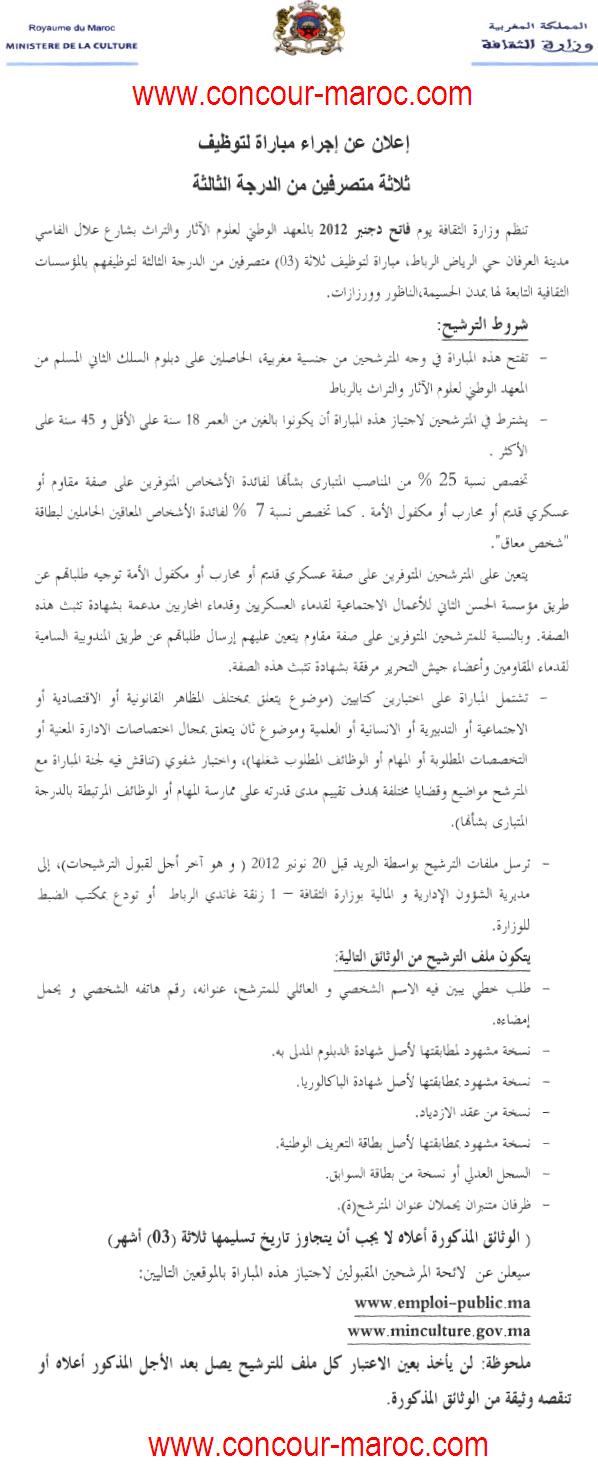 Royaume du Maroc
MINISTERE DE LA CULTURE
المملكة المغربية
وزارة الثقافة
www.concour-maroc.com
إعلان عن إجراء مباراة لتوظيف
ثلاثة متصرفين من الدرجة الثالثة
تنظم وزارة الثقافة يوم فاتح دجنبر 2012 بالمعهد الوطني لعلوم الآثار والتراث بشارع علال الفاسي
مدينة العرفان حي الرياض الرباط، مباراة لتوظيف ثلاثة (03) متصرفين من الدرجة الثالثة لتوظيفهم بالمؤسسات
الثقافية التابعة لها بمدن الحسيمة،الناظور وورزازات.
شروط الترشيح:
- تفتح هذه المباراة في وجه المترشحين من جنسية مغربية، الحاصلين على دبلوم السلك الثاني المسلم من
المعهد الوطني لعلوم الآثار والتراث بالرباط
- يشترط في المترشحين لاجتياز هذه المباراة أن يكونوا بالغين من العمر 18 سنة على الأقل و 45 سنة على
الأكثر .
تخصص نسبة 25 % من المناصب المتبارى بشأنها لفائدة الأشخاص المتوفرين على صفة مقاوم أو
عسكري قديم أو محارب أو مكفول الأمة . كما تخصص نسبة 7 % لفائدة الأشخاص المعاقين الحاملين لبطاقة
"شخص معاق".
يتعين على المترشحين المتوفرين على صفة عسكري قديم أو محارب أو مكفول الأمة توجيه طلباتهم عن
طريق مؤسسة الحسن الثاني للأعمال الاجتماعية لقدماء العسكريين وقدماء المحاربين مدعمة بشهادة تثبث هذه
الصفة. وبالنسبة للمترشحين المتوفرين على صفة مقاوم يتعين عليهم إرسال طلباتهم عن طريق المندوبية السامية
لقدماء المقاومين وأعضاء جيش التحرير مرفقة بشهادة تثبث هذه الصفة.
- تشتمل المباراة على اختيارين كتابيين (موضوع يتعلق بمختلف المظاهر القانونية أو الاقتصادية أو
الاجتماعية أو التدبيرية أو الانسانية أو العلمية وموضوع ثان يتعلق بمجال اختصاصات الادارة المعنية أو
التخصصات المطلوبة أو المهام أو الوظائف المطلوب شغلها)، واختبار شفوي (تناقش فيه لجنة المباراة مع
المترشح مواضيع وقضايا مختلفة بهدف تقييم مدى قدرته على ممارسة المهام أو الوظائف المرتبطة بالدرجة
المتبارى بشأنها).
- ترسل ملفات الترشيح بواسطة البريد قبل 20 نونبر 2012 ( و هو آخر أجل لقبول الترشيحات)، إلى
مديرية الشؤون الإدارية و المالية بوزارة الثقافة – 1 زنقة غاندي الرباط أو تودع بمكتب الضبط
للوزارة.
يتكون ملف الترشيح من الوثائق التالية:
- طلب خطي يبين فيه الاسم الشخصي و العائلي للمترشح، عنوانه، رقم هاتفه الشخصي و يحمل
إمضاءه.
- نسخة مشهود لمطابقتها لأصل شهادة الدبلوم المدلى به.
- نسخة مشهود بمطابقتها لأصل شهادة الباكالوريا.
- نسخة من عقد الازدياد.
- نسخة مشهود بمطابقتها لأصل بطاقة التعريف الوطنية.
- السجل العدلي أو نسخة من بطاقة السوابق.
- ظرفان متنبران يحملان عنوان المترشح(ة).
( الوثائق المذكورة أعلاه لا يجب أن يتجاوز تاريخ تسليمها ثلاثة (03) أشهر)
سيعلن عن لائحة المرشحين المقبولين لاجتياز هذه المباراة بالموقعين التاليين:
www.emploi-public.ma
www.minculture.gov.ma
ملحوظة: لن يأخذ بعين الاعتبار كل ملف للترشيح يصل بعد الأجل المذكور أعلاه أو
تنقصه وثيقة من الوثائق المذكورة.
www.concour-maroc.com